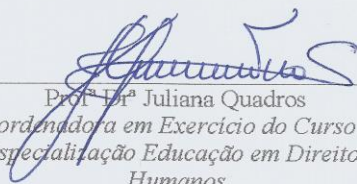 Profª Drª Juliana Quadros
ordenadora em Exercício do Curso
specialização Educação em Direito
Humanos